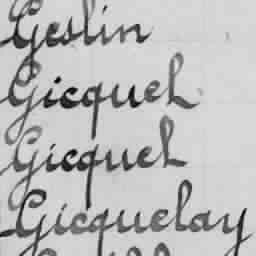 Geslin
Gicquel
Gicquel
Gicquelay